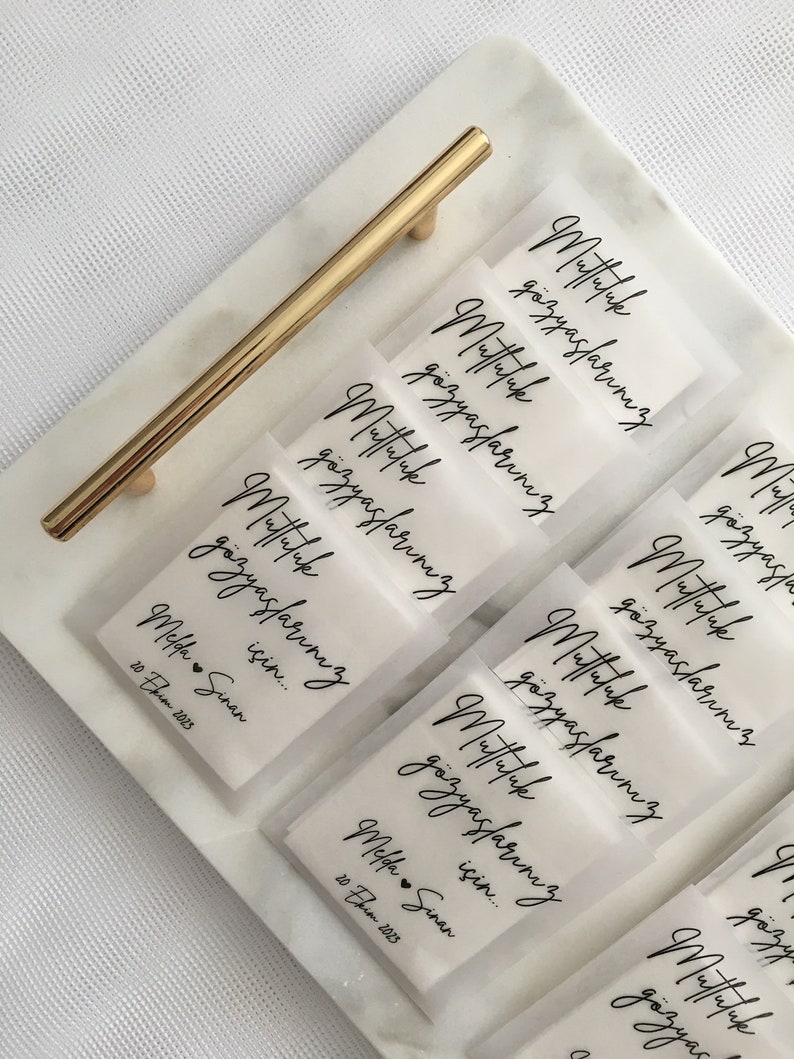 Mutluluk
gözyaşlarınız
Mutluluk
gözyaşlarınız
Mutluluk
gözyaşlarınız
Mutluluk
gözyaşlarınız
için...
Melda ♥ Sinan
20 Ekim 2023
Mutluluk
gözyaşlarınız
Mutluluk
gözyaşlarınız
Mutluluk
gözyaşlarınız
Mutluluk
gözyaşlarınız
için...
Melda ♥ Sinan
20 Ekim 2023
Mutluluk
gözyaşlarınız